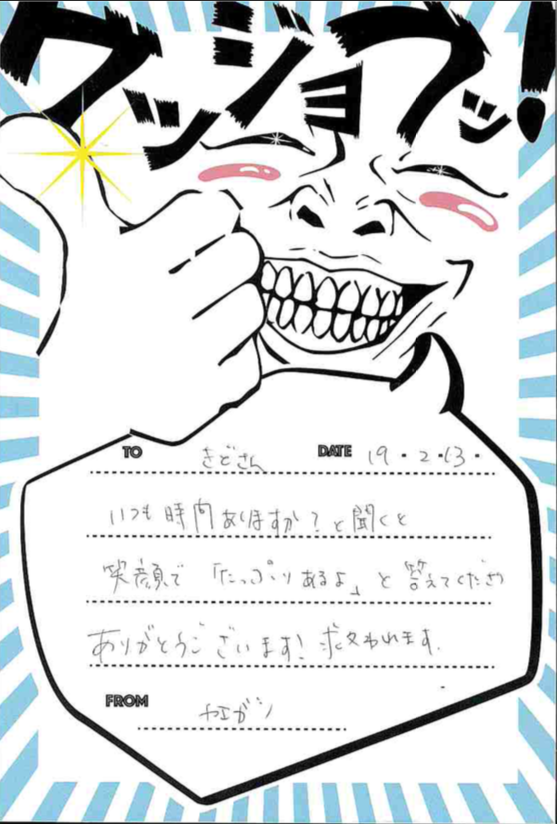 グッジョブッ!
TO きどさん DATE 19・2・13・
いつも時間ありますか?と聞くと
笑顔で「たっぷりあるよ」と答えてくださり
ありがとうございます!救われます。
FROM